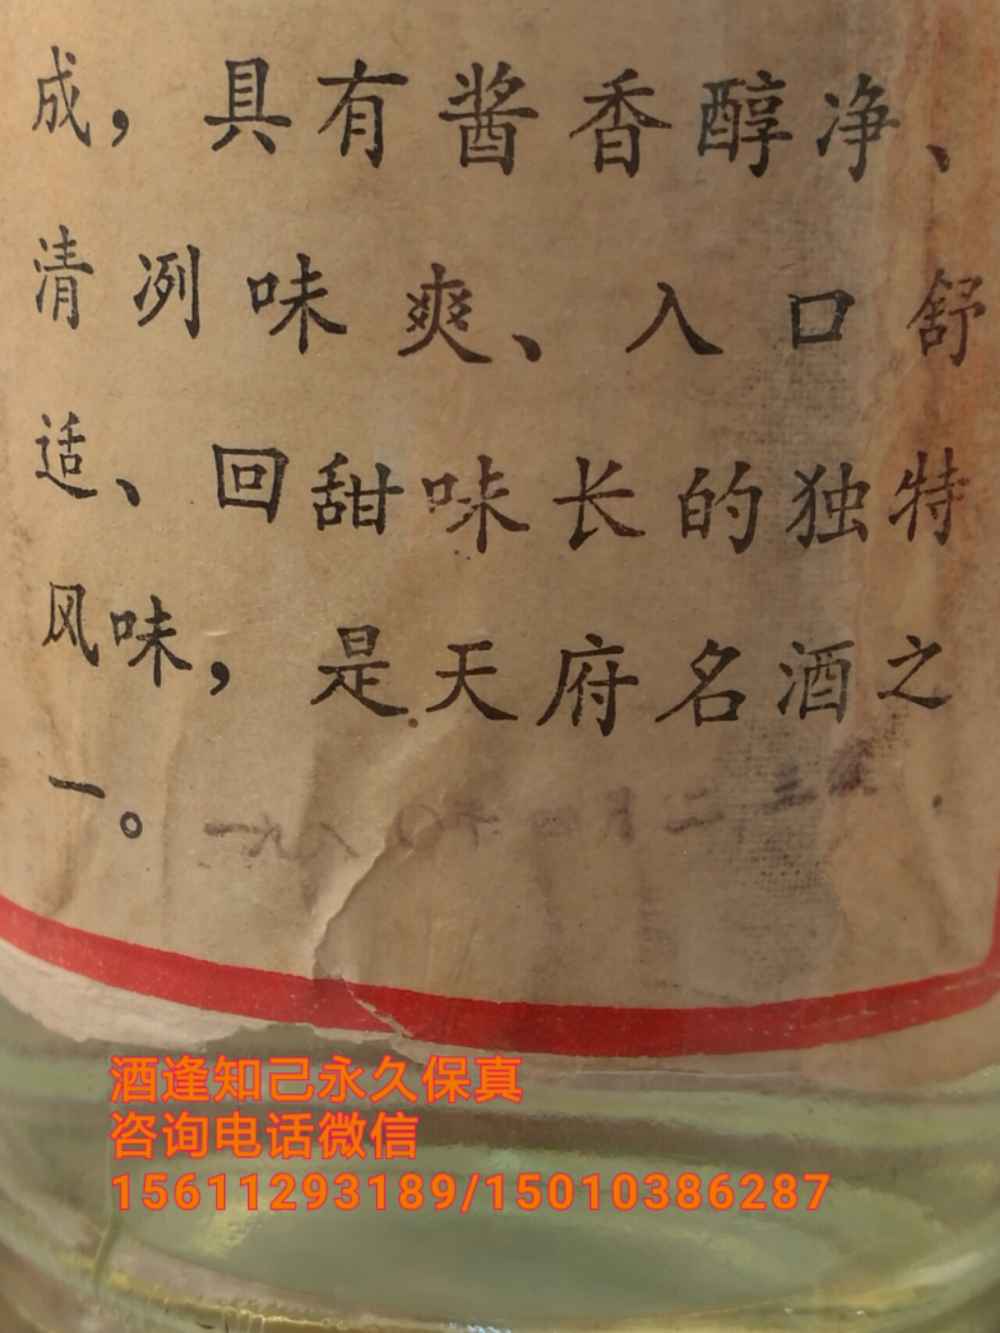 成，具有酱香醇净、
清冽味爽、入口舒
适、回甜味长的独特
风味，是天府名酒之
一。
一九八〇六四月二十三
酒逢知己永久保真
咨询电话微信
15611293189/15010386287